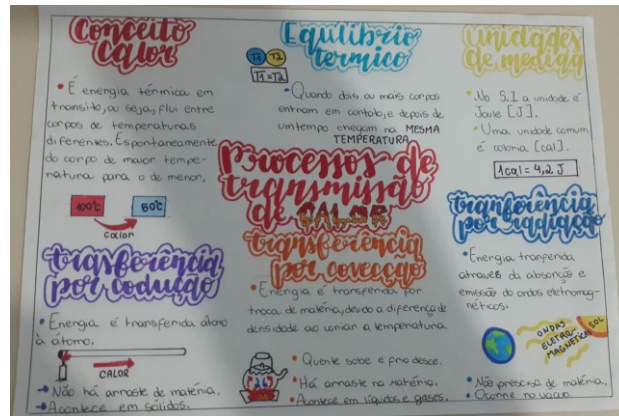 Conceito
Calor
• É energia térmica em
transito, ou seja, flui entre
corpos de temperaturas
diferentes. Espontaneamente
do corpo de maior tempe-
ratura para o de menor.
100°C
50°C
calor
Equilíbrio
termico
T1
T2
T1=T2
• Quando dois ou mais corpos
entram em contato, e depois de
um tempo chegam na MESMA
TEMPERATURA
Unidades
de medida
• No S.I a unidade é
Joule [J].
• Uma unidade comum
é caloria [cal].
1cal = 4,2 J
Processos de
transmissão
de CALOR
transferência
por codução
• Energia é transferida átomo
à átomo.
CALOR
→ Não há arraste de matéria.
→ Acontece em sólidos.
tranferência
por covecção
• Energia é transferida por
troca de matéria, devido a diferença de
densidade ao variar a temperatura.
• Quente sobe e frio desce.
• Há arraste na matéria.
• Acontece em líquidos e gases.
tranferência
por radiação
• Energia tranferida
atraves da absorção e
emissão do ondas eletromag-
néticas.
ONDAS
ELETRO-
MAGNETICAS
SOL
• Não precisa de matéria.
• Ocorre no vacuo.